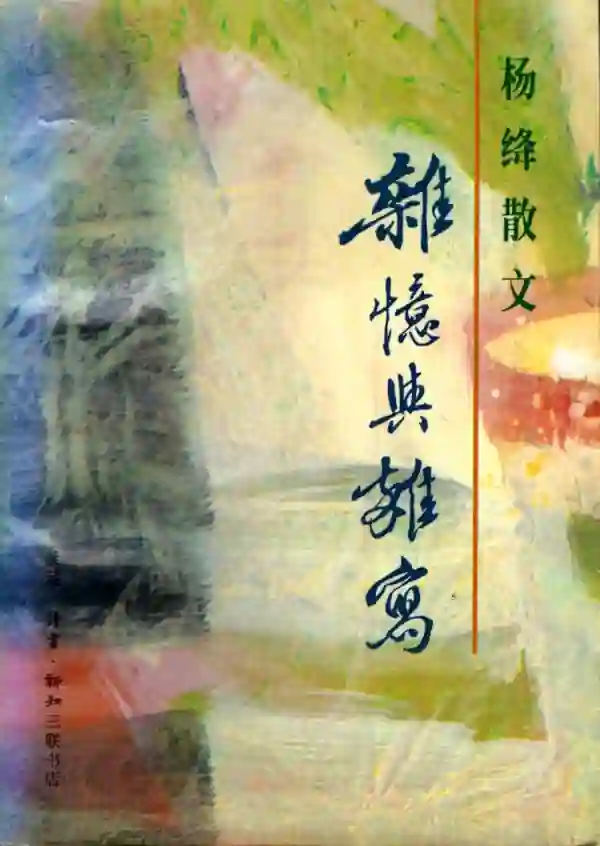 杨绛散文
雜憶與雜寫
生活·讀書·新知三联书店